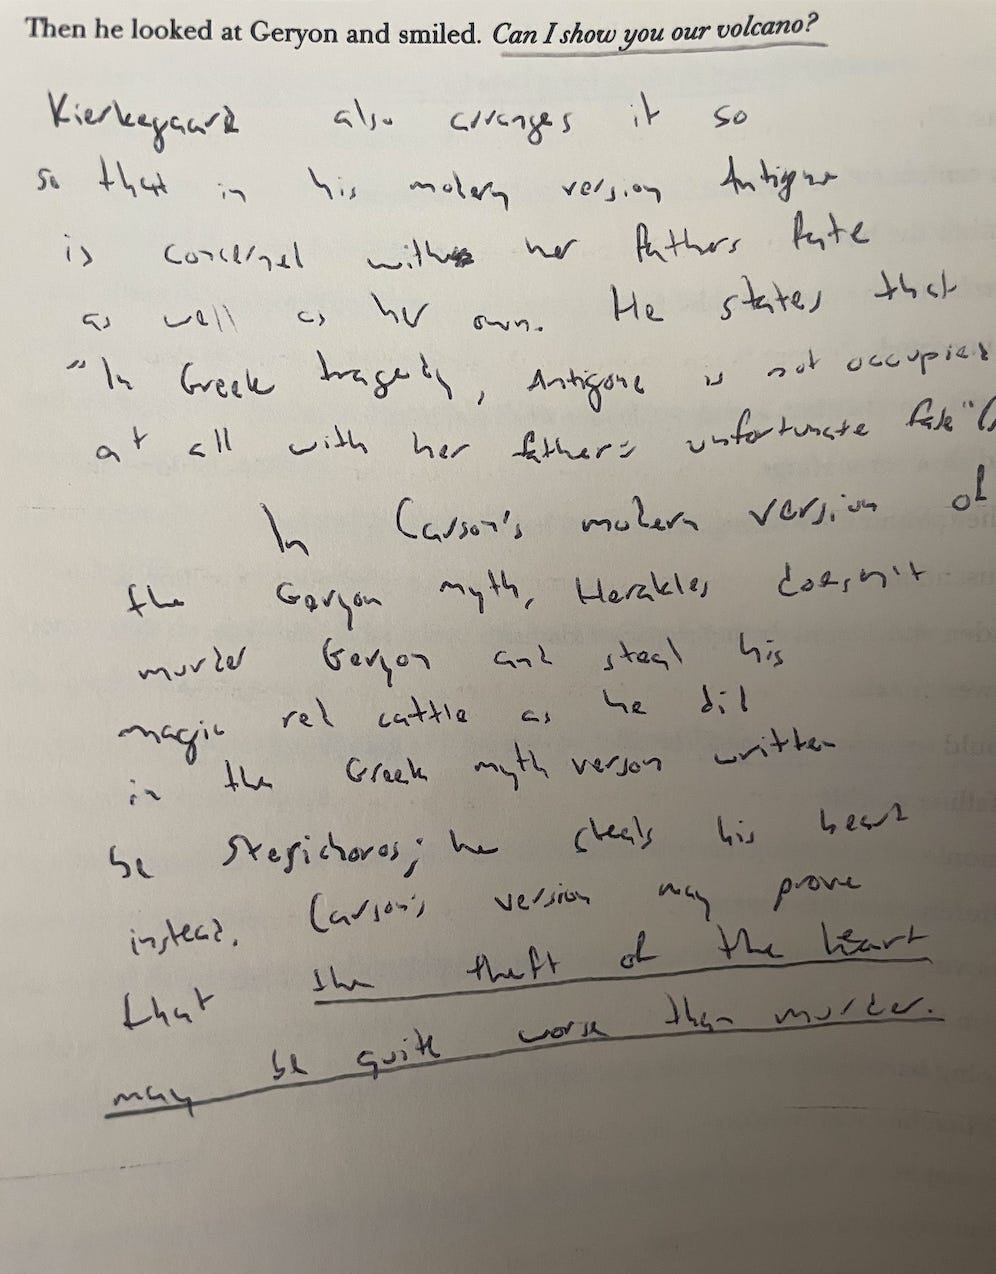 Then he looked at Geryon and smiled. Can I show you our volcano?
Kierkegaard also arranges it so
so that in his modern version Antigone
is concerned with her fathers fate
as well as her own. He states that
"In Greek tragedy, Antigone is not occupied
at all with her father's unfortunate fate" (
In Carson's modern version of
the Geryon myth, Herakles doesn't
murder Geryon and steal his
magic red cattle as he did
in the Greek myth verson written
be Stesichoros; he steals his heart
instead. Carson's version may prove
that the theft of the heart
may be quite worse than murder.